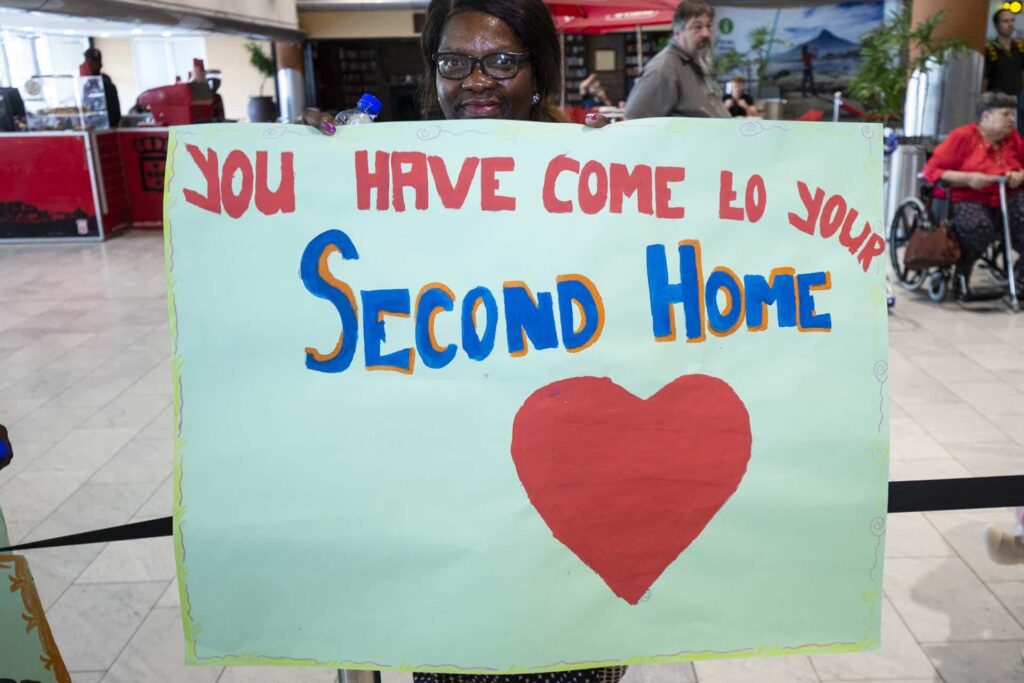 YOU HAVE COME to YOUR
SECOND HOME